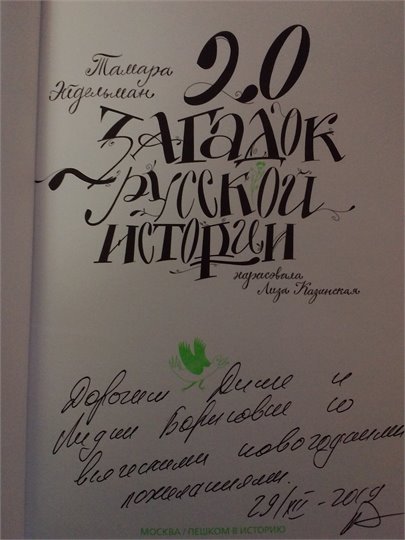 Тамара
Эйдельман
20
ЗАГАДОК
РУССКОЙ
ИСТОРИИ
нарисовала
Лиза Казинская
Дорогим Диме и
Лидии Борисовне со
всяческими новогодними
пожеланиями.
29/XII-2019
МОСКВА / ПЕШКОМ В ИСТОРИЮ